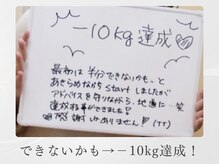 －10kg達成
最初は半分できないかも…と
あきらめながらStartしましたが
アドバイスを守りながら、地道に…笑
達成する事ができました！
謝 しかありません！(TT)
できないかも→－10kg達成！